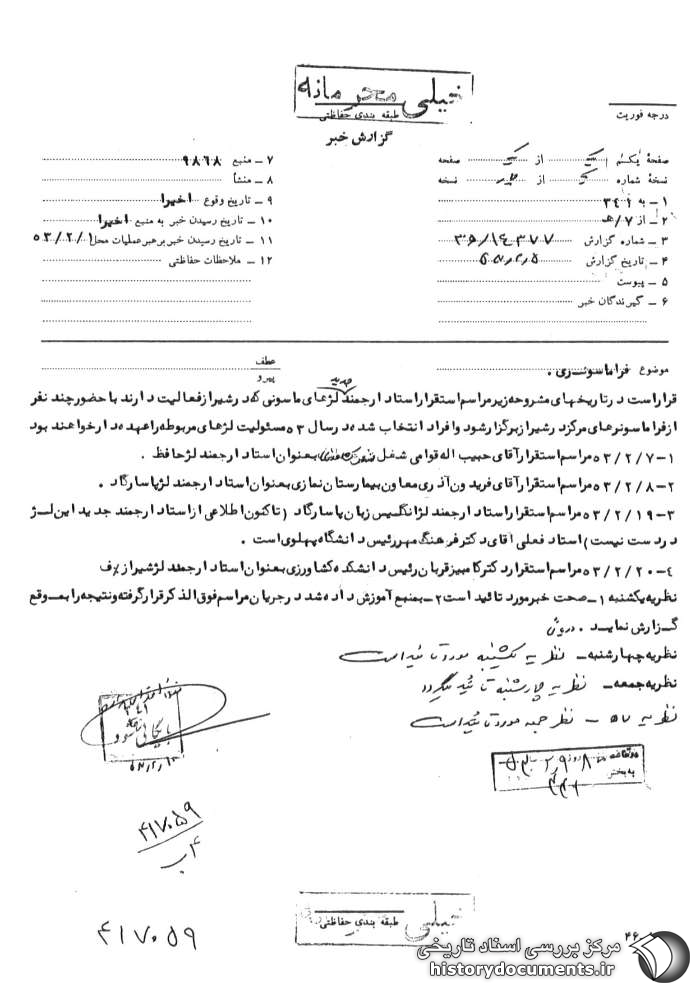 خیلی محرمانه
طبقه بندی حفاظتی
درجه فوریت
گزارش خبر
صفحهٔ یکم از یک صفحه
نسخهٔ شماره یک از نسخه
۱ - به ۳۴۱
۲ - از ۷/هـ
۳ - شماره گزارش
۴ - تاریخ گزارش
۵ - پیوست
۶ - گیرندگان خبر
۷ - منبع ۹۸۶۸
۸ - منشأ
۹ - تاریخ وقوع اخیرا
۱۰ - تاریخ رسیدن خبر به منبع اخیرا
۱۱ - تاریخ رسیدن خبر برهبر عملیات محل ۵۳/۲/۱
۱۲ - ملاحظات حفاظتی
موضوع فراماسونری .
عطف
پیرو
قرار است در تاریخهای مشروحه زیر مراسم استقرار استاد ارجمند لژهای جدید ماسونی که در شیراز فعالیت دارند با حضور چند نفر
از فراماسونرهای مرکز در شیراز برگزار شود و افراد انتخاب شده در سال ۵۳ مسئولیت لژهای مربوطه را عهده دار خواهند بود
۱-۵۳/۲/۷ مراسم استقرار آقای حبیب اله قوامی شغل بعنوان استاد ارجمند لژ حافظ .
۲-۵۳/۲/۸ مراسم استقرار آقای فریدون آذری معاون بیمارستان نمازی بعنوان استاد ارجمند لژ پاسارگاد .
۳-۵۳/۲/۱۹ مراسم استقرار استاد ارجمند لژ انگلیسی زبان پاسارگاد (تاکنون اطلاعی از استاد ارجمند جدید این لژ
در دست نیست) استاد فعلی آقای دکتر فرهنگ مهر رئیس دانشگاه پهلوی است .
۴-۵۳/۲/۲۰ مراسم استقرار دکتر کامبیز قربان رئیس دانشکده کشاورزی بعنوان استاد ارجمند لژ شیراز
نظریه یکشنبه ۱- صحت خبر مورد تائید است ۲- بمنبع آموزش داده شد در جریان مراسم فوق الذکر قرار گرفته و نتیجه را بموقع
گزارش نماید .
نظریه چهارشنبه - نظریه یکشنبه مورد تائید است
نظریه جمعه - نظریه چهارشنبه تائید میگردد
نظریه ۵۷ - نظر جمعه مورد تائید است
۳۴۱
بایگانی شود
۴۱۷۰۵۹
۴ ب
۴۱۷۰۵۹
خیلی
طبقه بندی حفاظتی
۴۶
مرکز بررسی اسناد تاریخی
historydocuments.ir